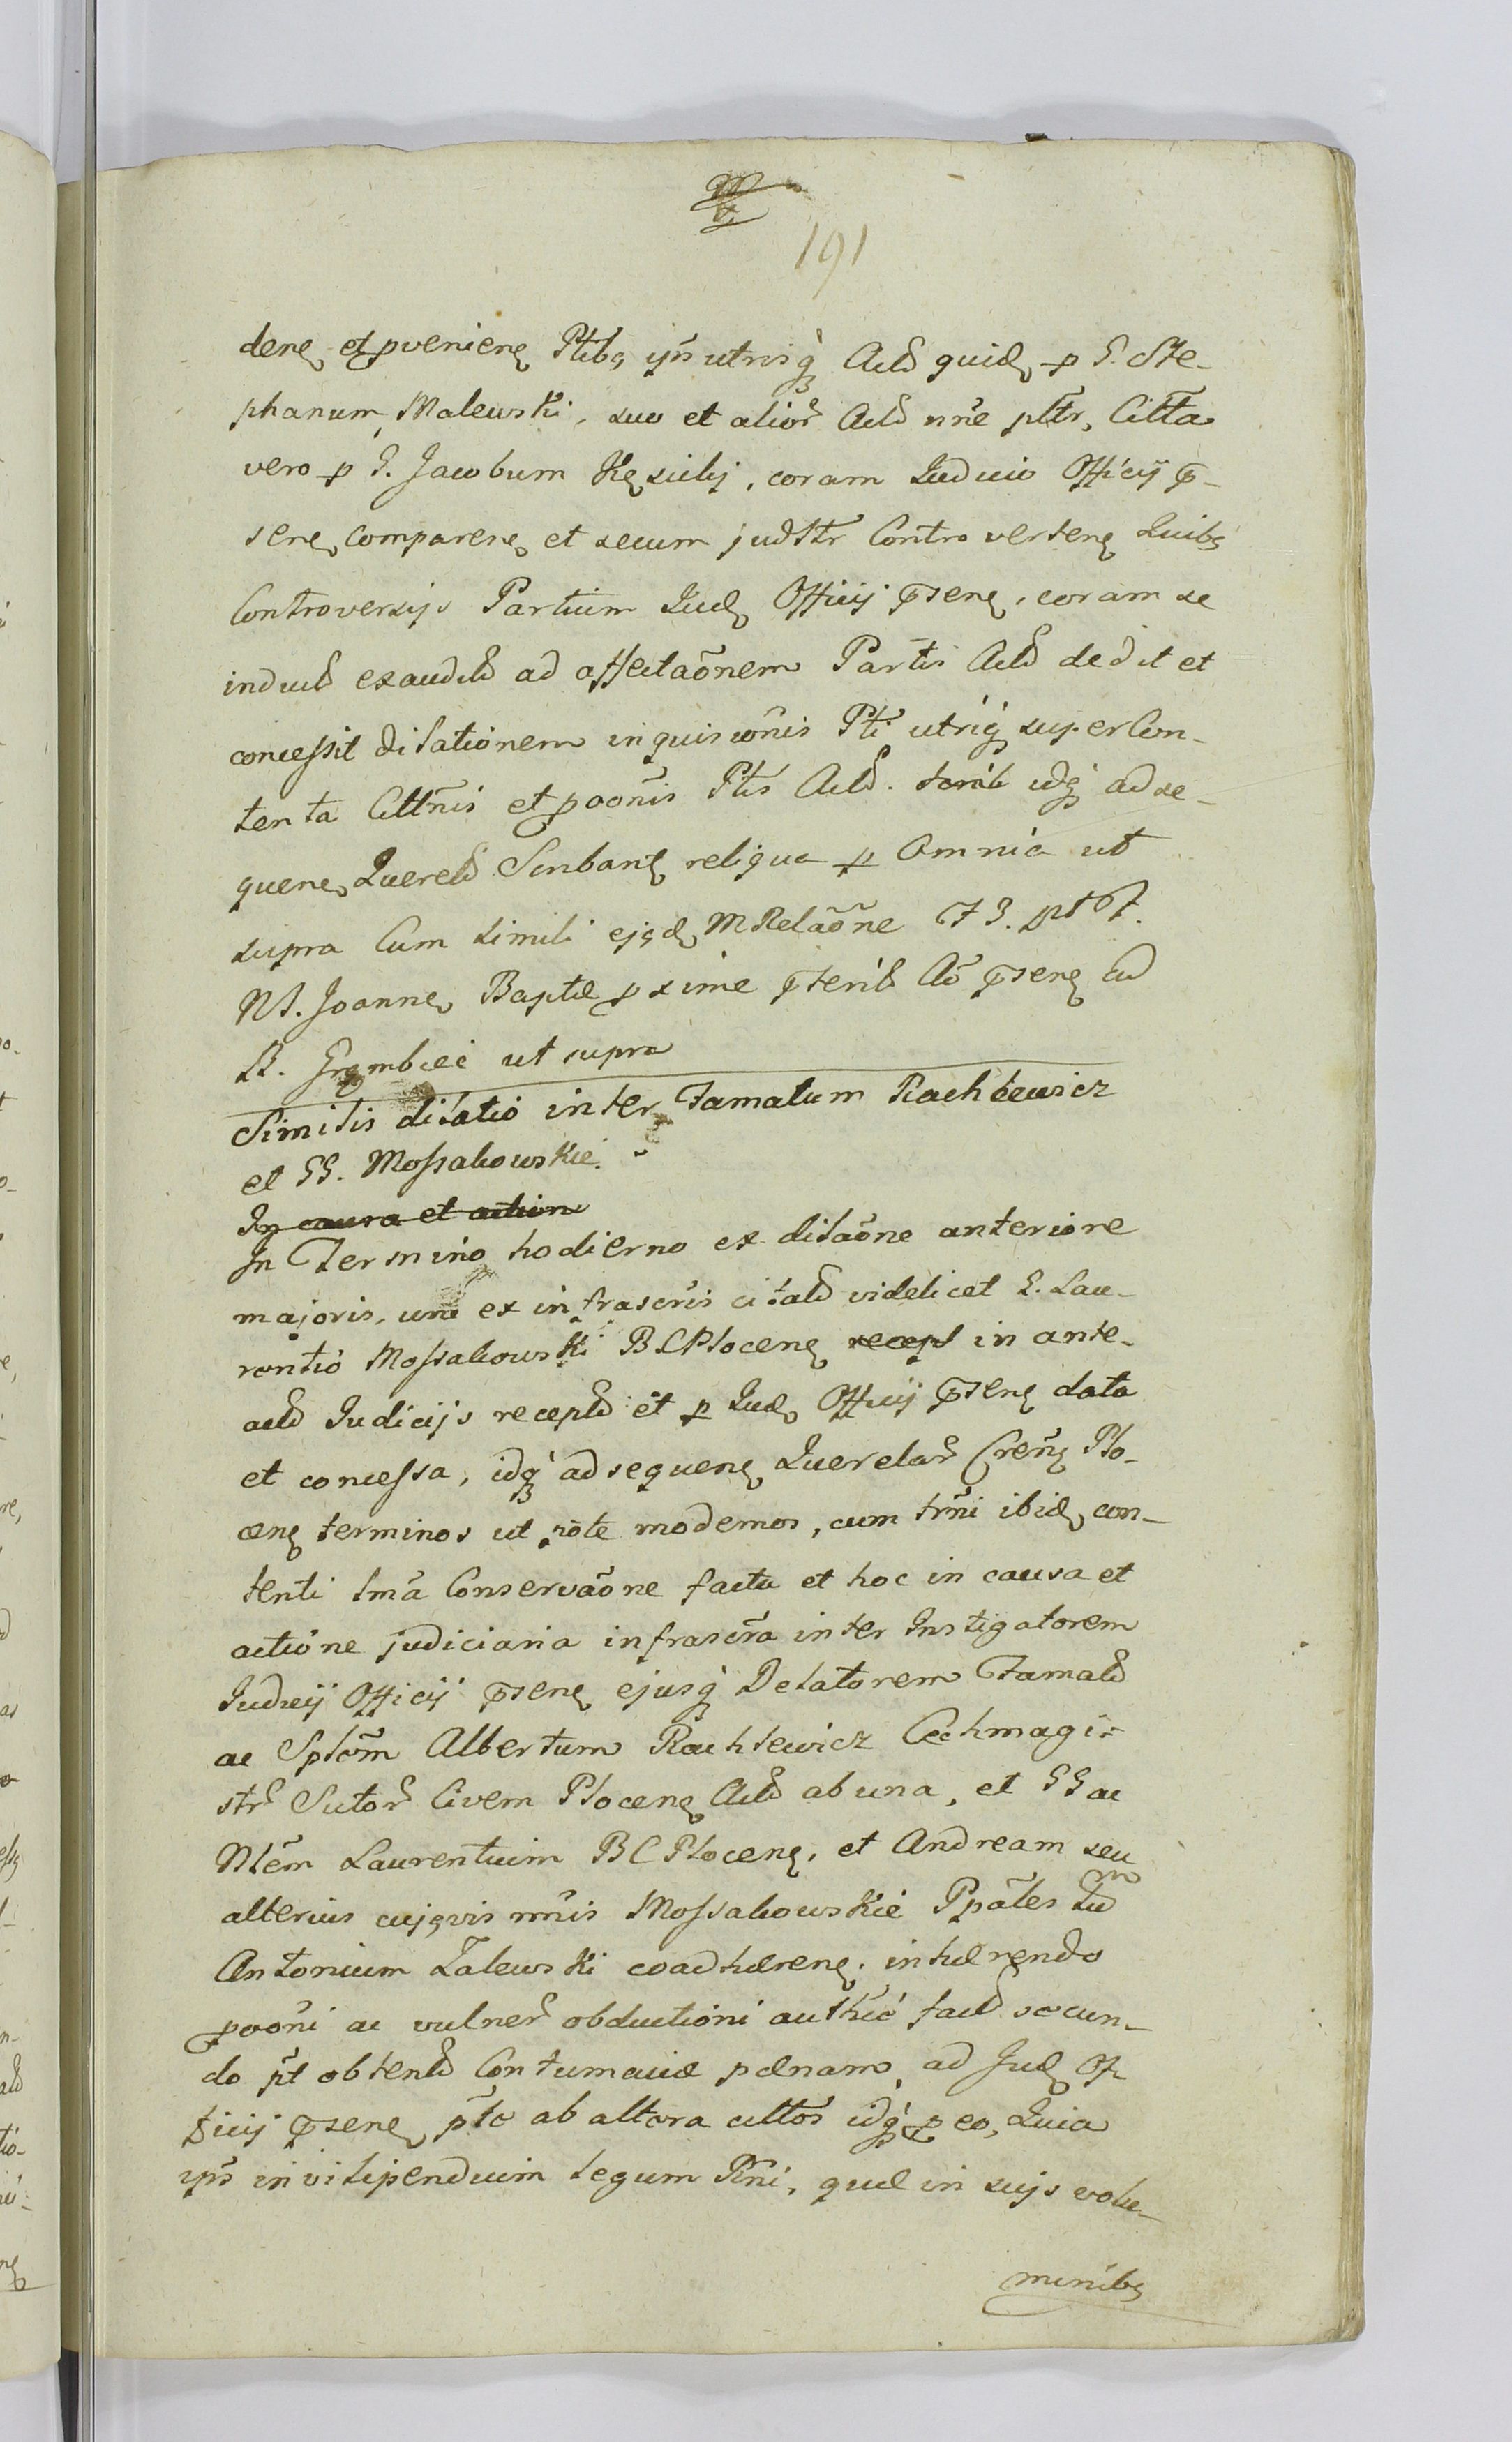 191
den̄ et pvenien̄ Ptibq ip̄s utrisq̃ Actã quid p G. Ste-
phanum Malewski, suo et alior̃ Actã nn̄e pltr, Citta
vero p G. Jacobum Kęsicki, coram Judicio Officij p̄-
sen̄ comparen̄ et secum judltr Controverten̄ Quibq
Controversijs Partium Jud Officij p̄sen̄, coram se
induct exaudit ad affectaõnem Partis Actã dedit et
concessit dilationem inquisiõnis Pti utriq̃ super Con-
tenta Citt̄nis et pōonis Ptis Actã. idq̃ ad se-
quen̄ Querel Scribant reliqua p Omnia ut
supra Cum simili ejqd M Relaõne 73.
Joannem Baptæ pxime p̄terit Aõ p̄sen̄ ad
Grzmbice ut supra
Similis dilatio inter Famatum Rachtewicz
et GG. Mossakowskie.
In causa et action
In Termino hodierno ex dilaõne anteriore
majoris, una ex infrascr̄is citatt videlicet G. Lau-
rentio Mossakowski BCPłocen̄ recept in ante-
actt Judicijs recept et p Jud Officij p̄sen̄ data
et concessa, idq̃ ad sequen̄ Querelar̃ Cren̄ Pło-
cen̄ terminos ut note modernos, cum trñi ibid, con-
tenti tmã Conservaõne facta et hoc in causa et
actione judiciaria infrascr̃a inter Instigatorem
Judicij Officij p̄sen̄ ejusq̃ Delatorem Famatt
ac Spt̄m Albertum Rachtewicz Cechmagi-
str̃ Sutor̃ Civem Płocen̄ Actt ab una, et GG ac
Laurentium BC Płocen̄, et Andream seu
alterius cujqvis nnis Mossakowskie Ppāles
Antonium Zalewski coadhæren̄, inhærendo
pōoni ac vulner̃ obductioni authcé fact secun-
do pt obtent Contumaciæ pænam, ad Jud Of-
ficij p̄sen̄ pltr ab altera cittos idq̃ p eo, Quia
ip̄s in vilipendium legum Rñi, quæ in suijs volu-
minibq